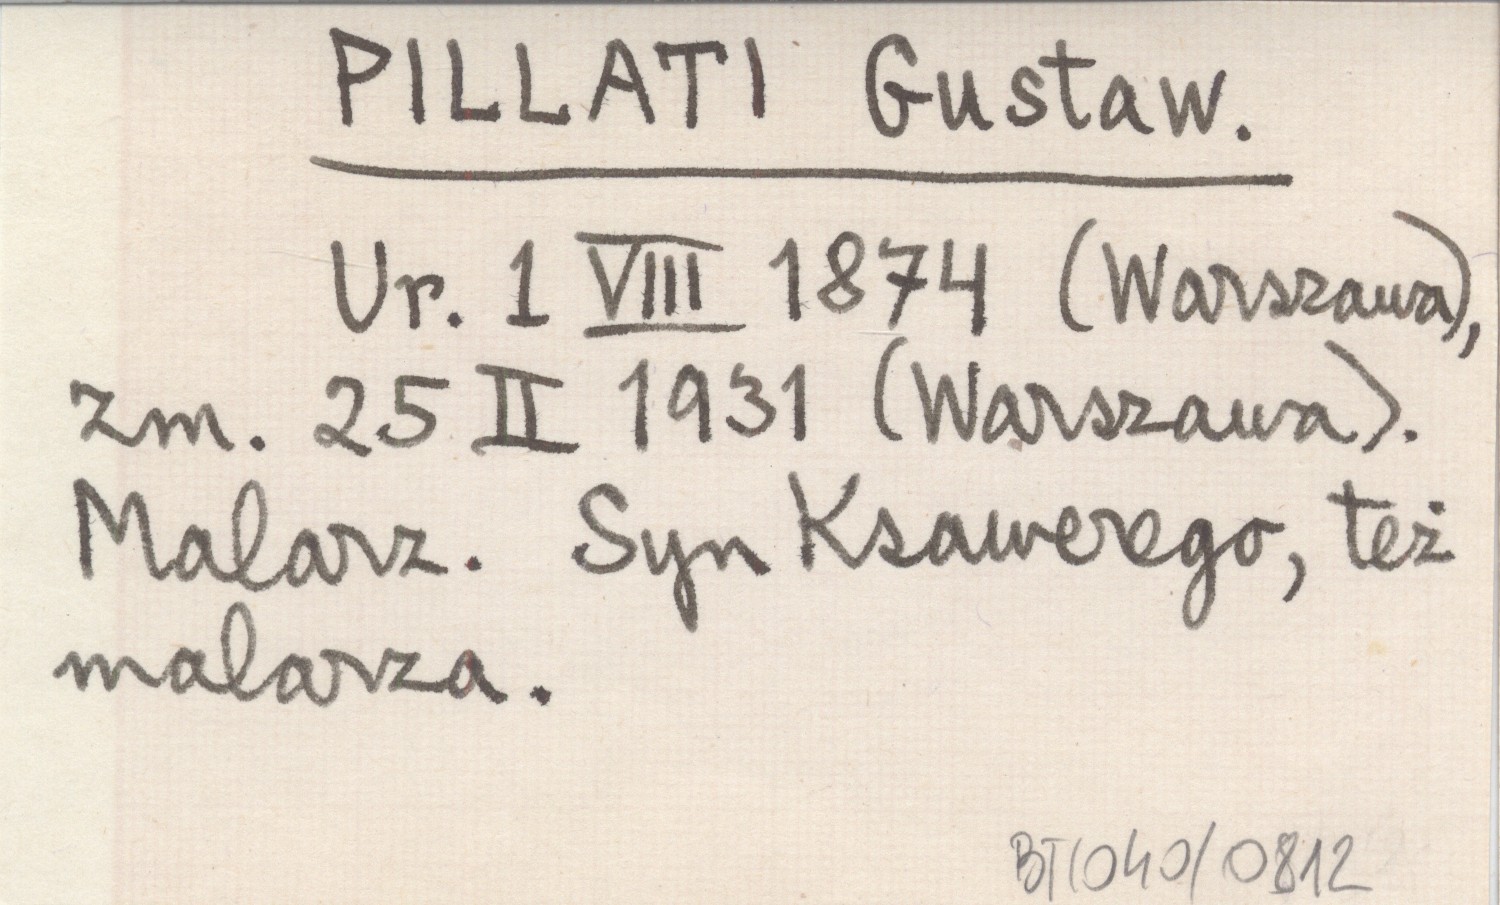 PILLATI Gustaw.
Ur. 1 VIII 1874 (Warszawa),
zm. 25 II 1931 (Warszawa).
Malarz. Syn Ksawerego, też
malarza.
BT/040/0812